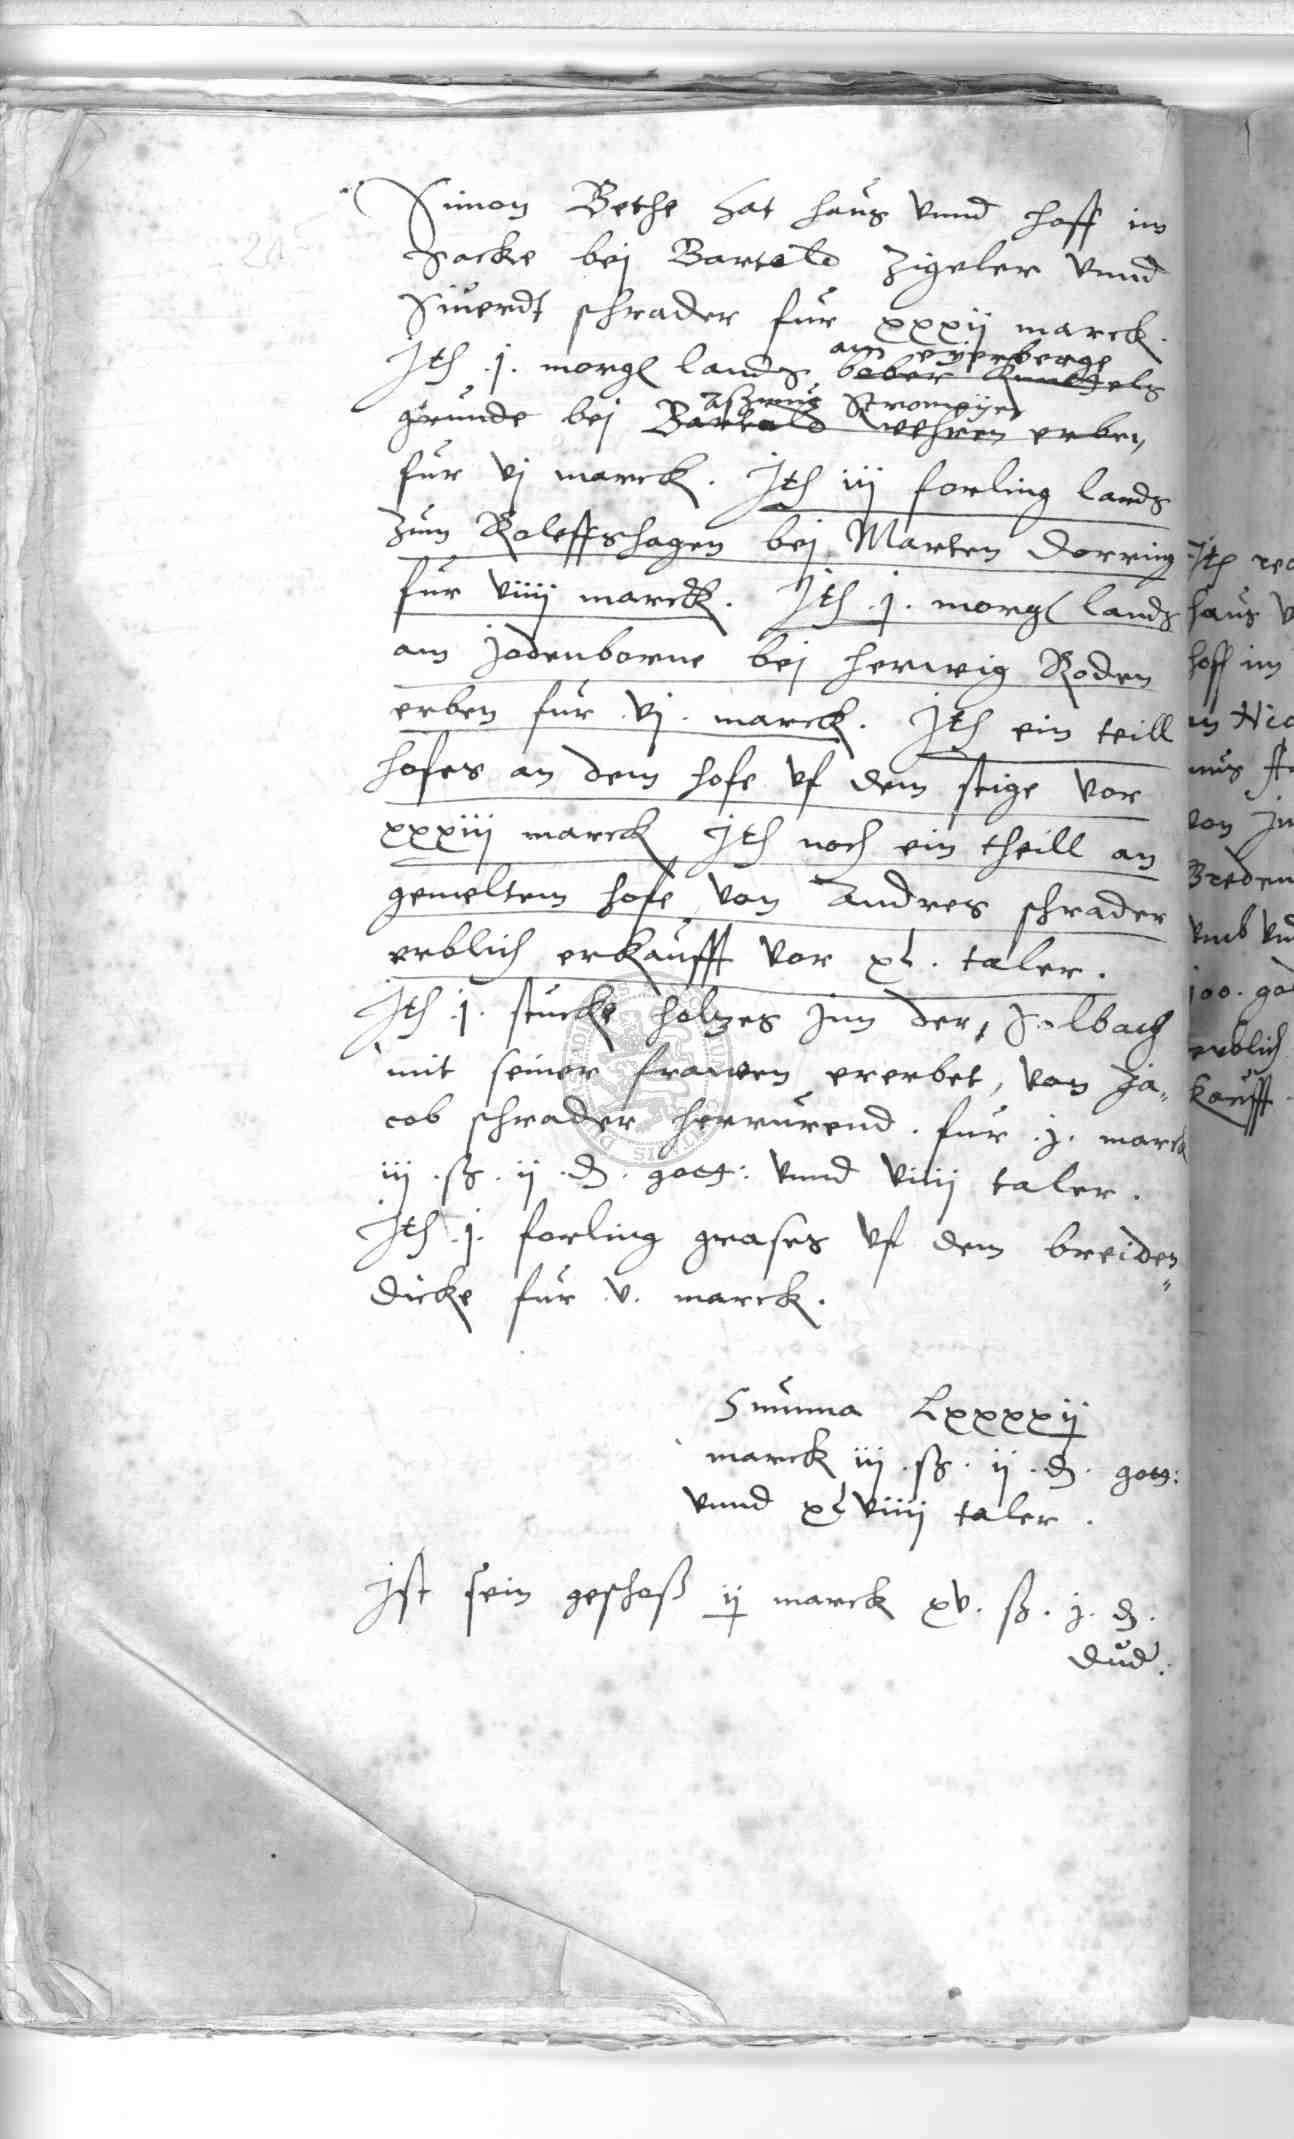 Simon Bethe hat haus vnnd hoff im
Sacke bej Barteld Zigeler vnnd
Siuerdt schrader fur xxxij marck.
am eyerberge
Jth .j. morgl lands bober Kunegels
Aßmus Stromeyer
grunde bej Barteld Wehren erben
fur vj marck. Jth iij forling lands
zum Roleffshagen bej Marten Dorring
fur viiij marck. Jth .j. morgl lands
am jodenborne bej herwig Roden
erben fur .vj. marck. Jth ein teill
hofes an dem hofe vf dem stige vor
xxxiij marck Jth noch ein theill an
gemeltem hofe von Andres schrader
erblich erkaufft vor xl. taler.
Jth .j. stucke holtzes jnn der Solbach
mit seiner frawen ererbet, von Ja„
cob schrader herrurend. fur .j. marck
iij .ß. ij .d. gott: vnnd viiij taler.
Jth .j. forling grases vf dem breiden„
Dicke fur .v. marck.
Summa Lxxxxij
marck iij .ß. ij .d. gott:
vnnd xlviiij taler.
Jst sein geschoß ij marck xv. ß. j. d.
dud.
Jth
haus
hoff im
von
Breden
vmb
joo.
erblich
kaufft